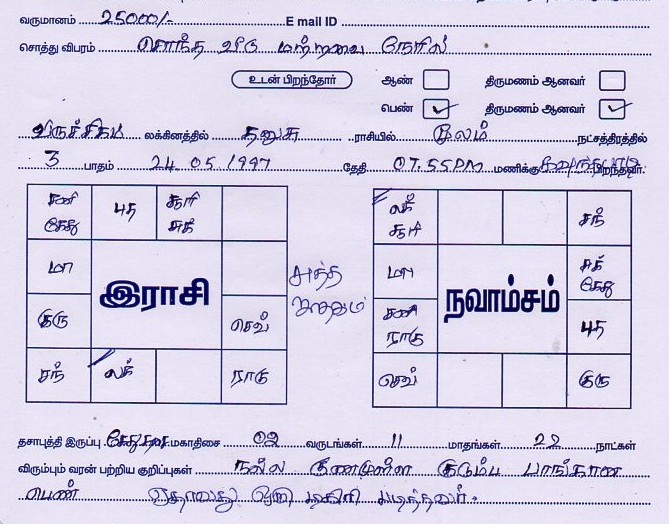 வருமானம் 25000/- E mail ID
சொத்து விபரம் சொந்த வீடு மற்றவை நேரில்
உடன் பிறந்தோர் ஆண் திருமணம் ஆனவர்
பெண் ✓ திருமணம் ஆனவர் ✓
விருச்சிகம் லக்கினத்தில் தனுசு ராசியில் மூலம் நட்சத்திரத்தில்
3 பாதம் 24.05.1997 தேதி 07.55PM மணிக்கு பிறந்தவர்.
சனி கேது புத சூரி சுக்
மா
இராசி
குரு செவ்
சந் லக் ராகு
லக் சூரி சந்
மா சுக் கேது
நவாம்சம்
சனி ராகு புத
செவ் குரு
தசாபுத்தி இருப்பு கேது தசை மகாதிசை 02 வருடங்கள் 11 மாதங்கள் 22 நாட்கள்
விரும்பும் வரன் பற்றிய குறிப்புகள் நல்ல குணமுள்ள குடும்ப பாங்கான
பெண் ஏதாவது ஒரு டிகிரி படித்தவர்.